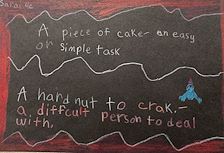 A piece of cake- an easy
or simple task
A hard nut to crak.-
a diffcult person to deal
with,